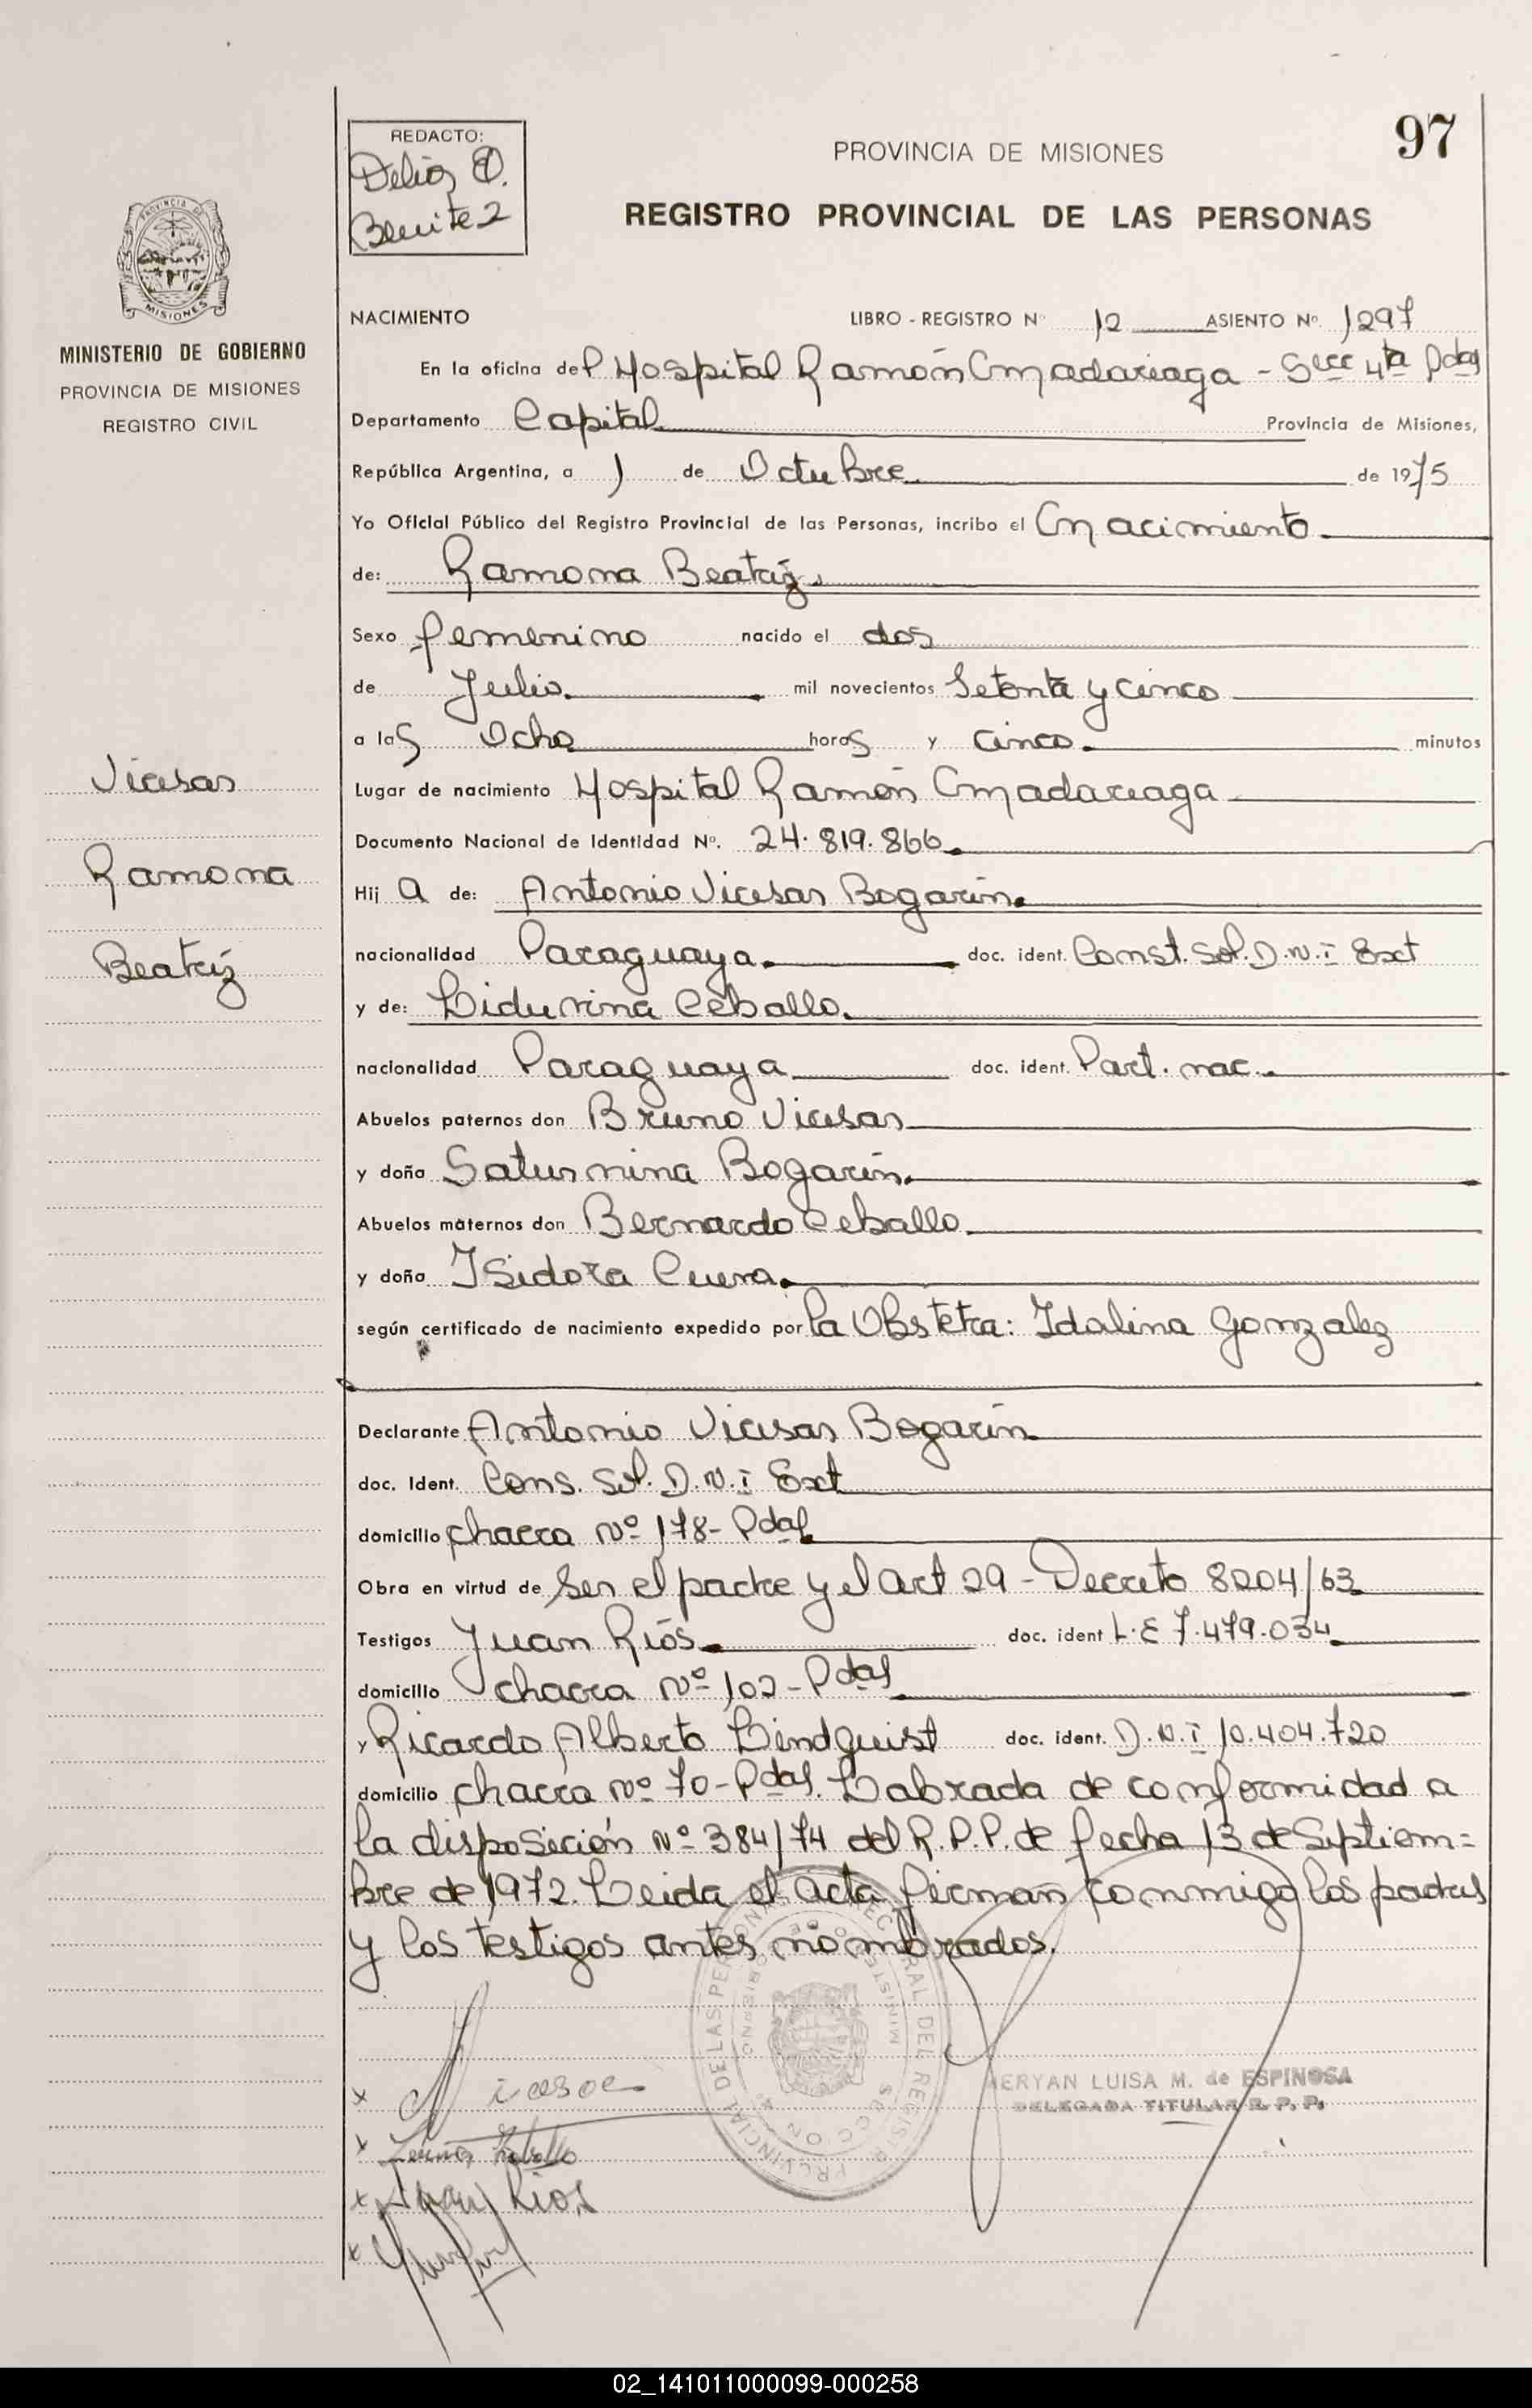 97
REDACTO:
Delia O.
Benitez
PROVINCIA DE MISIONES
REGISTRO PROVINCIAL DE LAS PERSONAS
PROVINCIA DE
MISIONES
MINISTERIO DE GOBIERNO
PROVINCIA DE MISIONES
REGISTRO CIVIL
Viersar
Ramona
Beatriz
NACIMIENTO LIBRO - REGISTRO Nº 12 ASIENTO Nº. 1297
En la oficina del Hospital Ramón Madariaga - Secc 4ta Pdas
Departamento Capital Provincia de Misiones,
República Argentina, a 1 de Octubre de 1975
Yo Oficial Público del Registro Provincial de las Personas, incribo el nacimiento
de: Ramona Beatriz
Sexo femenino nacido el dos
de Julio mil novecientos Setenta y cinco
a las Ocho horas y cinco minutos
Lugar de nacimiento Hospital Ramón Madariaga
Documento Nacional de Identidad Nº. 24.819.866
Hij a de: Antonio Viersar Bogarin
nacionalidad Paraguaya doc. ident. Const. Sol. D.N.I Ext
y de: Liduvina Ceballo
nacionalidad Paraguaya doc. ident. Part. nac.
Abuelos paternos don Bruno Viersar
y doña Saturnina Bogarin
Abuelos maternos don Bernardo Ceballo
y doña Isidora
según certificado de nacimiento expedido por la Obstetra: Idalina Gonzalez
Declarante Antonio Viersar Bogarin
doc. Ident. Cons. Sol. D.N.I Ext
domicilio chacra Nº 178- Pdas
Obra en virtud de ser el padre y el art 29 - Decreto 8204/63
Testigos Juan Riós doc. ident L.E 7.479.034
domicilio chacra Nº 102- Pdas
y Ricardo Alberto Lindquist doc. ident. D.N.I 10.404.720
domicilio chacra Nº 70- Pdas. Labrada de conformidad a
la disposición Nº 384/74 del R.P.P. de fecha 13 de Septiem=
bre de 1972. Leida el acta firman conmigo los padres
y los testigos antes nombrados.
ERYAN LUISA M. de ESPINOSA
DELEGADA TITULAR R. P. P.
x
x Ceballo
x Juan Rios
x
02_141011000099-000258